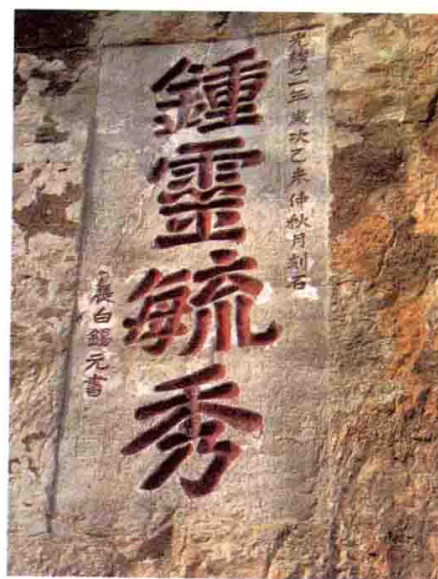 光緒廿一年歲次乙未仲秋月刻石
鍾靈毓秀
白錫元書